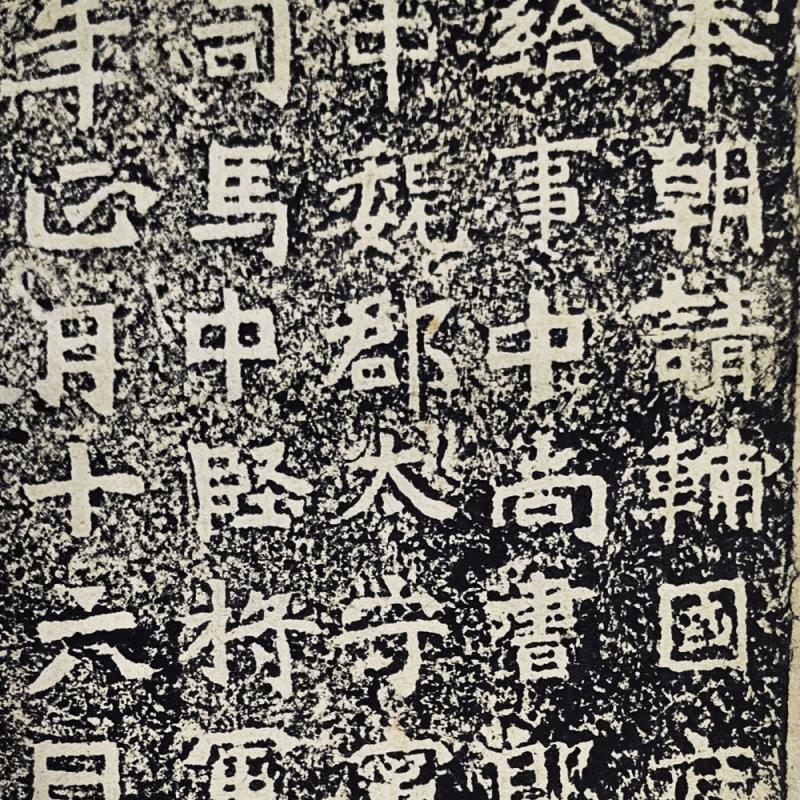 奉朝請輔國
給事中尚書郎
中魏郡太守
司馬中堅將軍
年正月十六日